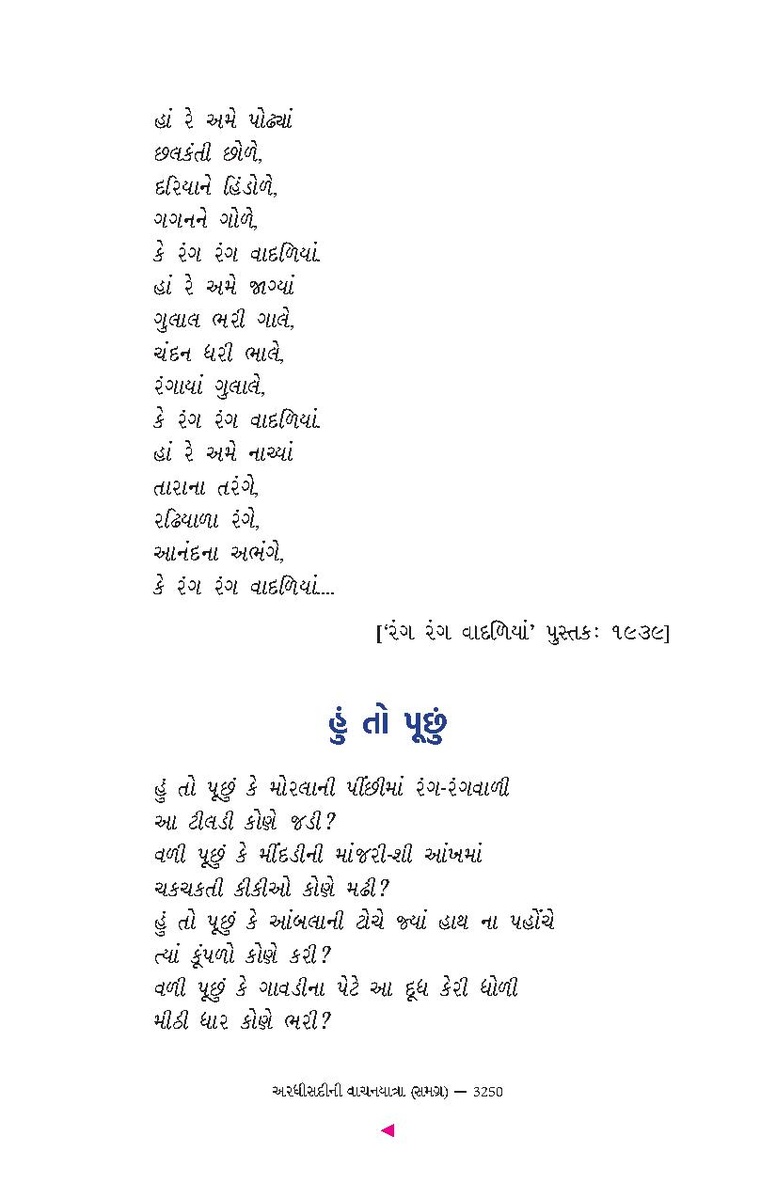 હાં રે અમે પોઢ્યાં
છલકંતી છોળે,
દરિયાને હિંડોળે,
ગગનને ગોળે,
કે રંગ રંગ વાદળિયાં.
હાં રે અમે જાગ્યાં
ગુલાલ ભરી ગાલે,
ચંદન ધરી ભાલે,
રંગાયાં ગુલાલે,
કે રંગ રંગ વાદળિયાં.
હાં રે અમે નાચ્યાં
તારાના તરંગે,
રઢિયાળા રંગે,
આનંદના અભંગે,
કે રંગ રંગ વાદળિયાં....
[‘રંગ રંગ વાદળિયાં’ પુસ્તક: ૧૯૩૯]
હું તો પૂછું
હું તો પૂછું કે મોરલાની પીંછીમાં રંગ-રંગવાળી
આ ટીલડી કોણે જડી?
વળી પૂછું કે મીંદડીની માંજરી-શી આંખમાં
ચકચકતી કીકીઓ કોણે મઢી?
હું તો પૂછું કે આંબલાની ટોચે જ્યાં હાથ ના પહોંચે
ત્યાં કૂંપળો કોણે કરી?
વળી પૂછું કે ગાવડીના પેટે આ દૂધ કેરી ધોળી
મીઠી ધાર કોણે ભરી?
અરધીસદીની વાચનયાત્રા (સમગ્ર) — 3250